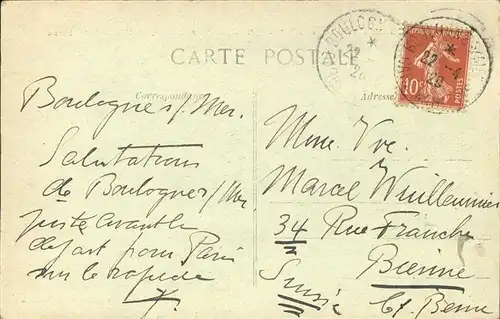 CARTE POSTALE
Correspondance
Adresse
Boulogne s/Mer.
Salutations
de Boulogne s/Mer
juste avant le
départ pour Paris
sur le rapide
Mme. Vve.
Marcel Wuilleumier
34 Rue Franche
Bienne
Suisse Ct. Berne
10